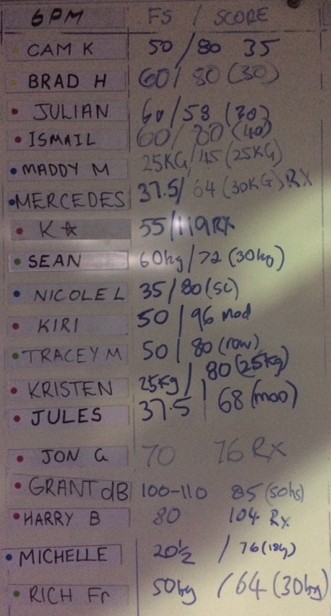 6PM FS / SCORE
CAM K 50 / 80 35
BRAD H 60 / 80 (30)
JULIAN 60 / 58 (30)
ISMAIL 60 / 80 (40)
MADDY M 25KG / 45 (25KG)
MERCEDES 37.5 / 64 (30KG) RX
K☆ 55 / 119 RX
SEAN 60kg / 72 (30kg)
NICOLE L 35 / 80 (sc)
KIRI 50 / 96 mod
TRACEY M 50 / 80 (row)
KRISTEN 25kg / 80 (25kg)
JULES 37.5 / 68 (mod)
JON G 70 76 RX
GRANT dB 100-110 85 (50hs)
HARRY B 80 104 Rx
MICHELLE 20½ / 76
RICH Fr 50kg / 64 (30kg)